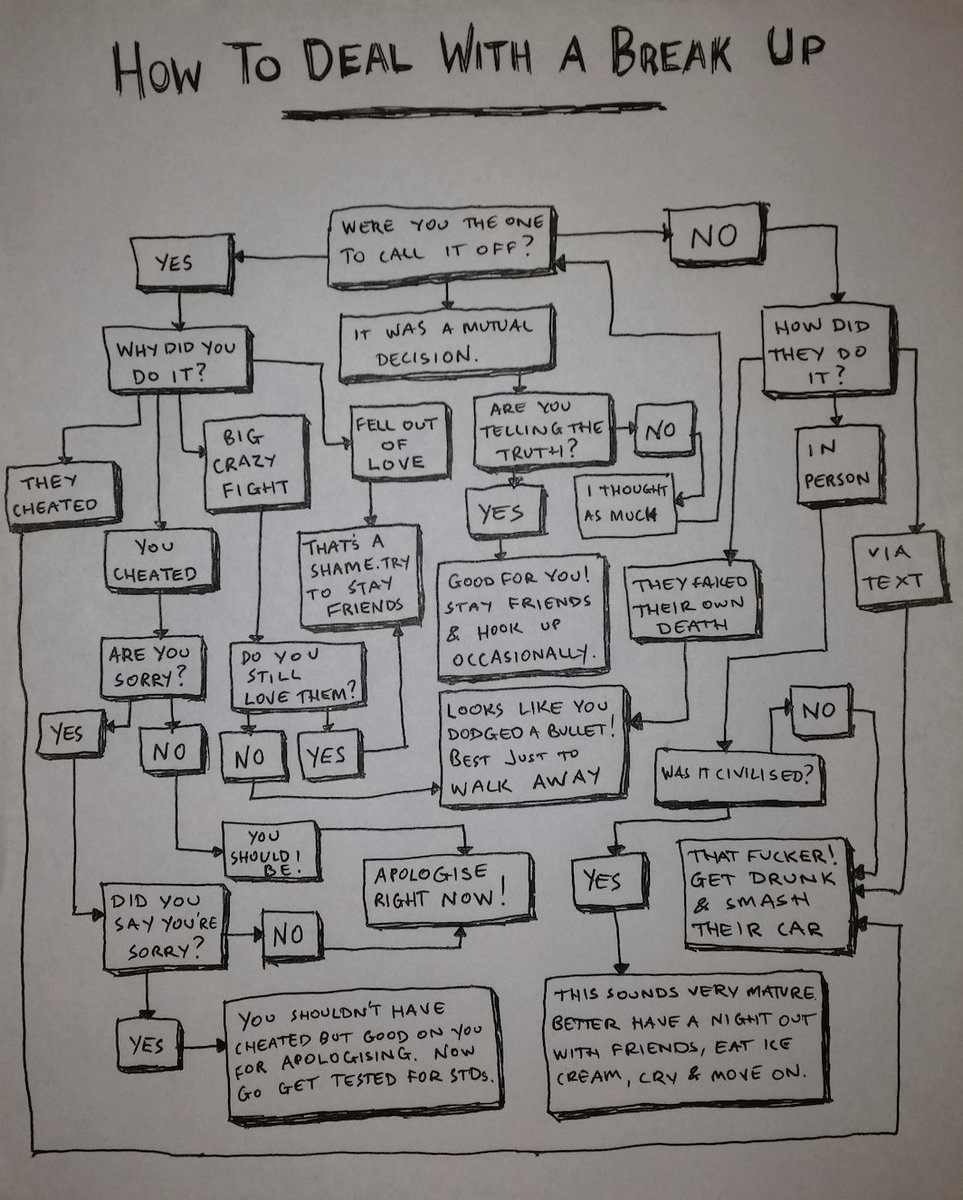 HOW TO DEAL WITH A BREAK UP
WERE YOU THE ONE
TO CALL IT OFF?
NO
YES
IT WAS A MUTUAL
DECISION.
HOW DID
THEY DO
IT?
WHY DID YOU
DO IT?
ARE YOU
TELLING THE
TRUTH?
NO
FELL OUT
OF
LOVE
BIG
CRAZY
FIGHT
IN
PERSON
THEY
CHEATED
I THOUGHT
AS MUCH
YES
YOU
CHEATED
THAT'S A
SHAME. TRY
TO STAY
FRIENDS
VIA
TEXT
GOOD FOR YOU!
STAY FRIENDS
& HOOK UP
OCCASIONALLY.
THEY FAKED
THEIR OWN
DEATH
ARE YOU
SORRY?
DO YOU
STILL
LOVE THEM?
YES
NO
NO
YES
LOOKS LIKE YOU
DODGED A BULLET!
BEST JUST TO
WALK AWAY
NO
WAS IT CIVILISED?
YOU
SHOULD
BE!
APOLOGISE
RIGHT NOW!
YES
THAT FUCKER!
GET DRUNK
& SMASH
THEIR CAR
DID YOU
SAY YOU'RE
SORRY?
NO
YES
YOU SHOULDN'T HAVE
CHEATED BUT GOOD ON YOU
FOR APOLOGISING. NOW
GO GET TESTED FOR STDs.
THIS SOUNDS VERY MATURE.
BETTER HAVE A NIGHT OUT
WITH FRIENDS, EAT ICE
CREAM, CRY & MOVE ON.